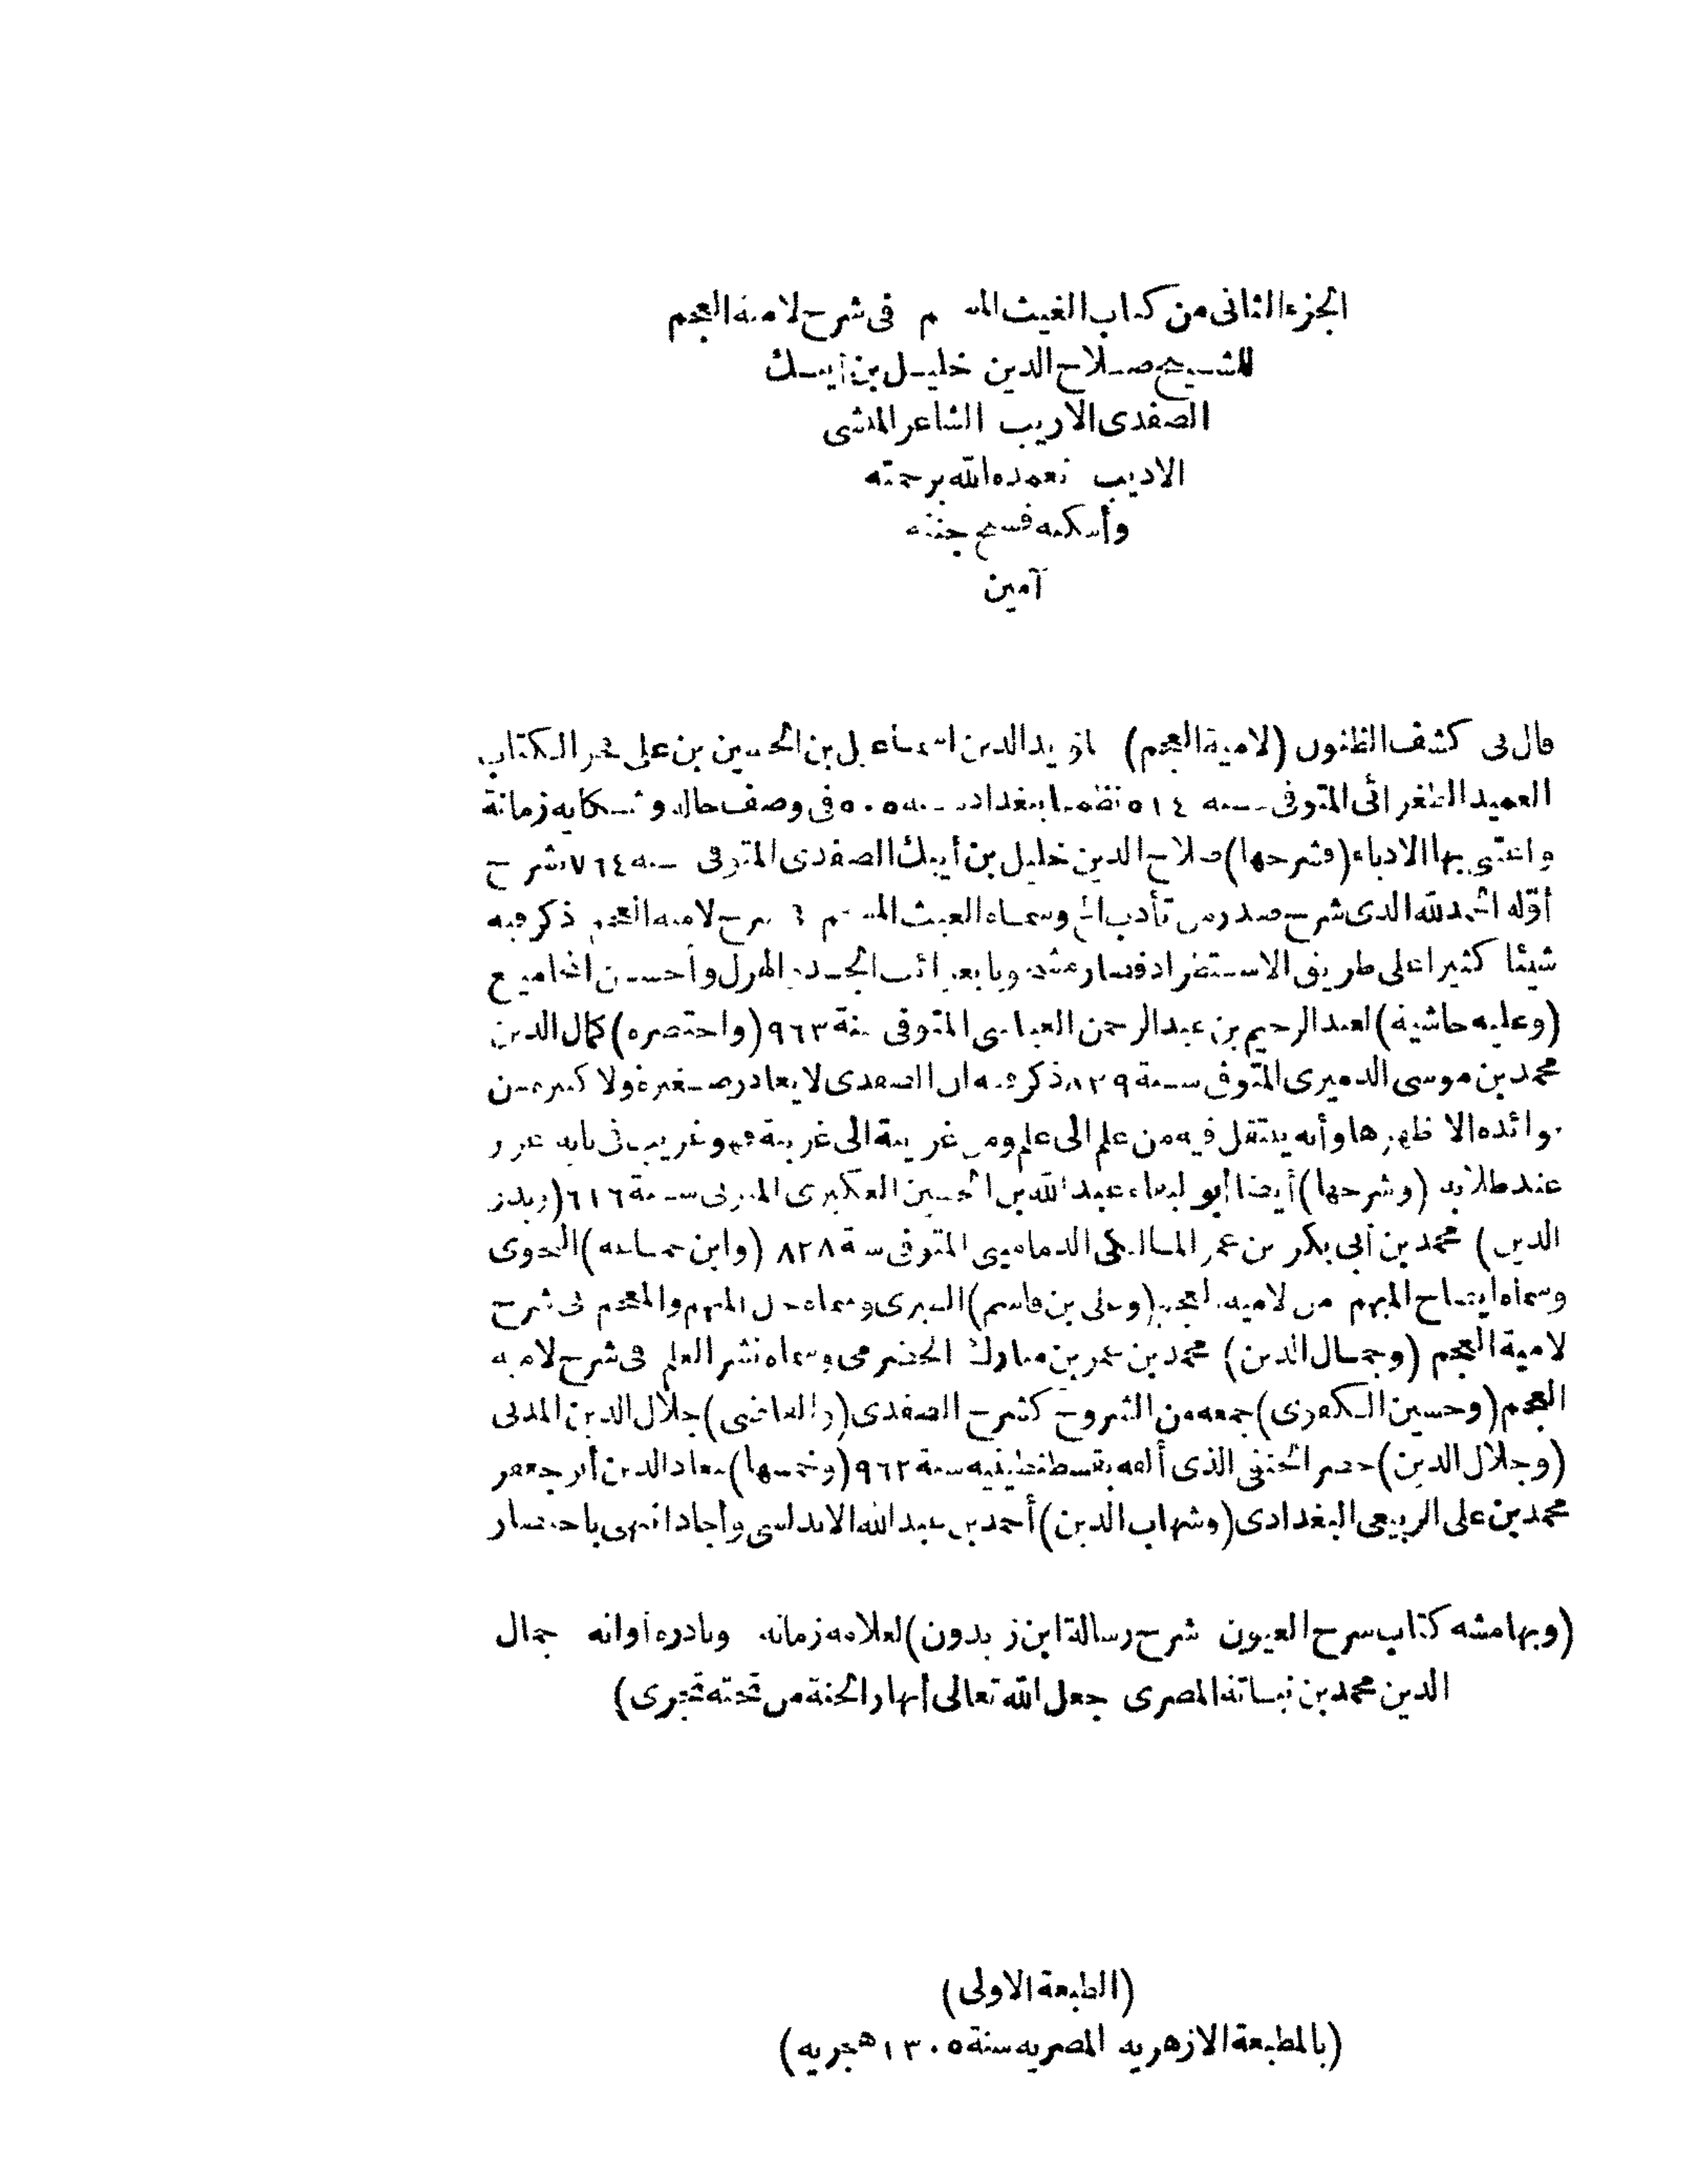 الجزء الثانى من كتاب الغيث المسجم فى شرح لامية العجم
للشيخ صلاح الدين خليل بن أيبك
الصفدى الاريب الشاعر المنشى
الاديب تغمده الله برحمته
وأسكنه فسيح جنته
آمين
قال فى كشف الظنون (لامية العجم) لمؤيد الدين اسماعيل بن الحسين بن على فخر الكتاب
العميد الطغرائى المتوفى سنة ٥١٤ نظمها ببغداد سنة ٥٠٥ فى وصف حاله وشكاية زمانة
واعتنى بها الادباء (فشرحها) صلاح الدين خليل بن أيبك الصفدى المتوفى سنة ٧٦٤ شرح
أوّله الحمد لله الذى شرح صدر من تأدب الخ وسماه الغيث المسجم فى شرح لامية العجم ذكر فيه
شيئا كثيرا على طريق الاستطراد فصار مشحونا بغرائب الجد والهزل وأحسن المجاميع
(وعليه حاشية) لعبد الرحيم بن عبد الرحمن العباسى المتوفى سنة ٩٦٣ (واختصره) كمال الدين
محمد بن موسى الدميرى المتوفى سنة ٨٢٩ ذكر فيه ان الصفدى لا يغادر صغيرة ولا كبيرة من
فوائده الا ظهرها وأنه ينتقل فيه من علم الى علم ومن غريبة الى غريبة فهو غريب فى بابه
عند طلابه (وشرحها) أيضا أبو البقاء عبد الله بن الحسين العكبرى المتوفى سنة ٦١٦ (وبدر
الدين) محمد بن أبى بكر بن عمر المالكى الدمامينى المتوفى سنة ٨٢٨ (وابن جماعة) النحوى
وسماه ايضاح المبهم من لامية العجم (وعلى بن قاسم) الطبرى وسماه حل المبهم والمعجم فى شرح
لامية العجم (وجمال الدين) محمد بن عمر بن مبارك الحضرمى وسماه نشر العلم فى شرح لامية
العجم (وحسين الكفوى) جمعه من الشروح كشرح الصفدى (والقاضى) جلال الدين المدنى
(وجلال الدين) خضر الحنفى الذى ألفه بقسطنطينيه سنة ٩٦٢ (وخمسها) عماد الدين أبو جعفر
محمد بن على الربيعى البغدادى (وشهاب الدين) أحمد بن عبد الله الاندلسى وأجاد انتهى باختصار
(وبهامشه كتاب سرح العيون شرح رسالة ابن زيدون) لعلامة زمانه ونادرة أوانه جمال
الدين محمد بن نباتة المصرى جعل الله تعالى أنهار الجنة من تحته تجرى)
(الطبعة الاولى)
(بالمطبعة الازهريه المصريه سنة ١٣٠٥ هجريه)